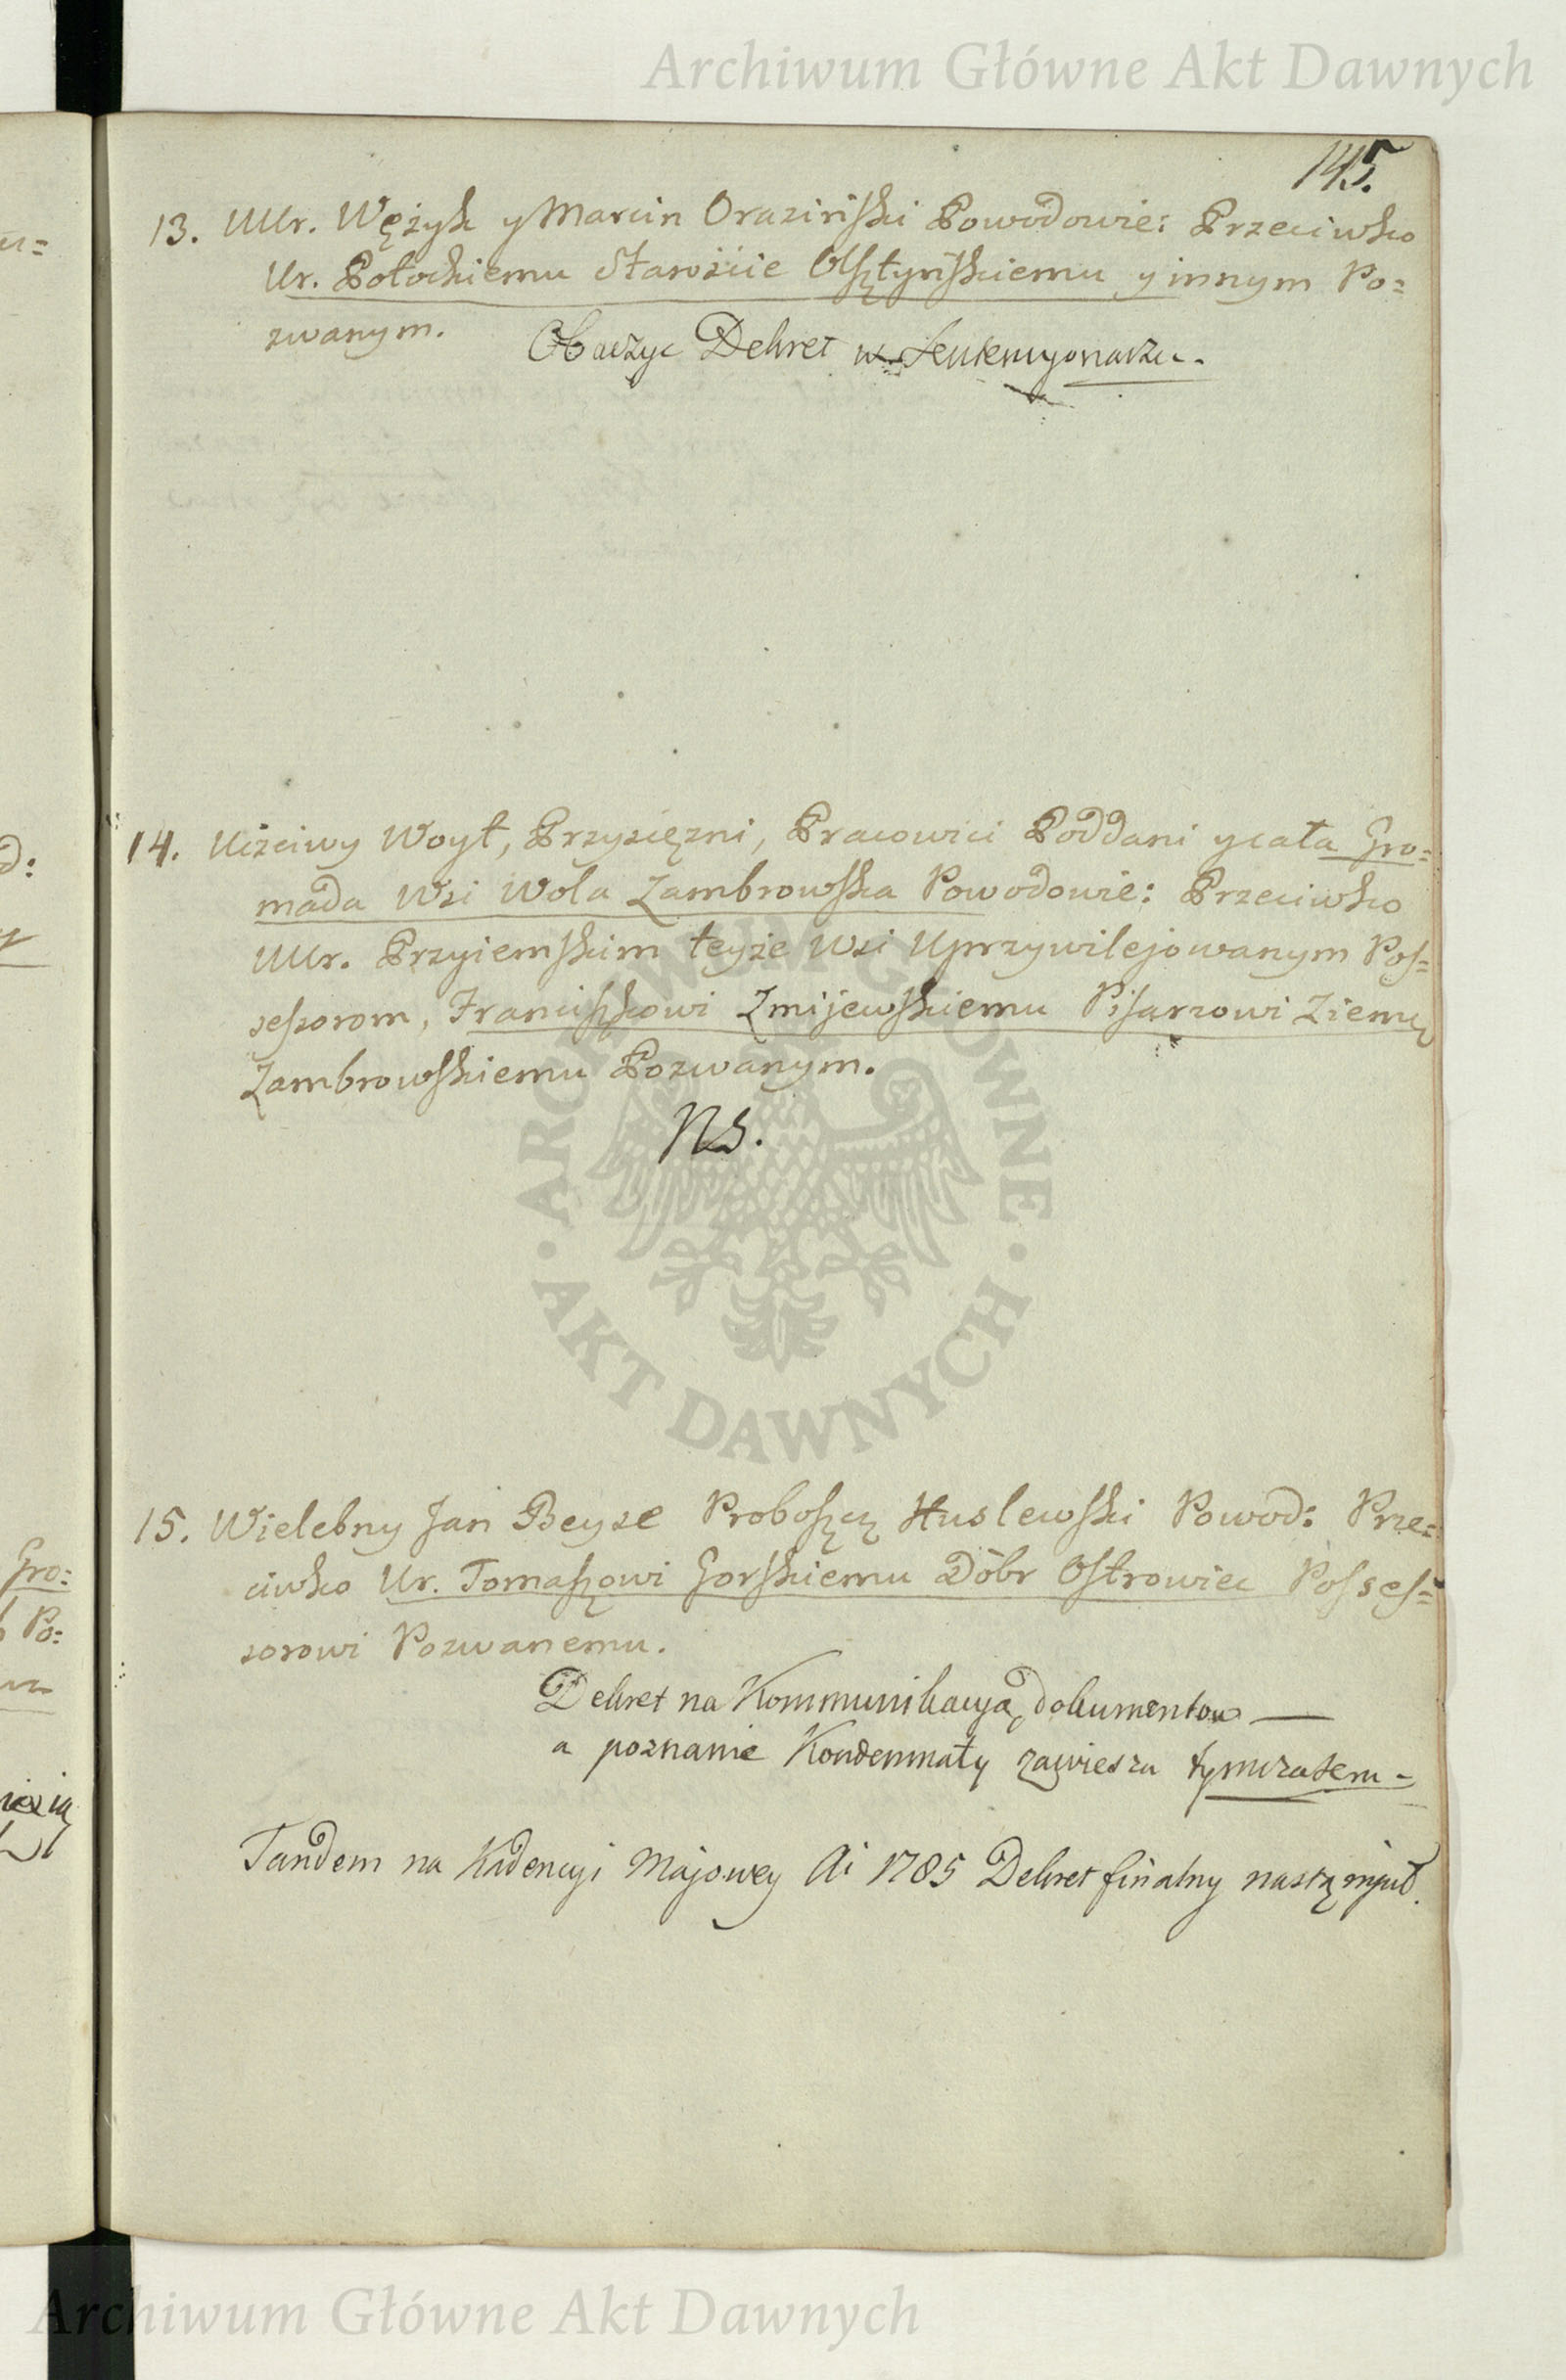 Archiwum Główne Akt Dawnych
145.
13. UUr. Wężyk y Marcin Oraziński Powodowie: Przeciwko
Ur. Potockiemu Staroście Olsztyńskiemu y innym Po=
zwanym.
Obaczyc Dekret w Sentencyonarzu.
14. Uczciwy Woyt, Przysięzni, Pracowici Poddani y cała Gro=
mada Wsi Wola Zambrowska Powodowie: Przeciwko
UUr. Przyiemskim teyże Wsi Uprzywilejowanym Pos=
sessorom, Franciszkowi Zmijewskiemu Pisarzowi Ziemu
Zambrowskiemu Pozwanym.
NS.
15. Wielebny Jan Beyze Proboszcz Huslewski Powod: Prze=
ciwko Ur. Tomaszowi Gorskiemu Dóbr Ostrowiec Posses=
sorowi Pozwanemu.
Dekret na Kommunikacyą dokumentow
a poznanie Kondemnaty zawiesza tymczasem
Tandem na Kadencyi Majowey Ai 1785 Dekret finalny nastąmpił.
ARCHIWUM GŁÓWNE
AKT DAWNYCH
Archiwum Główne Akt Dawnych